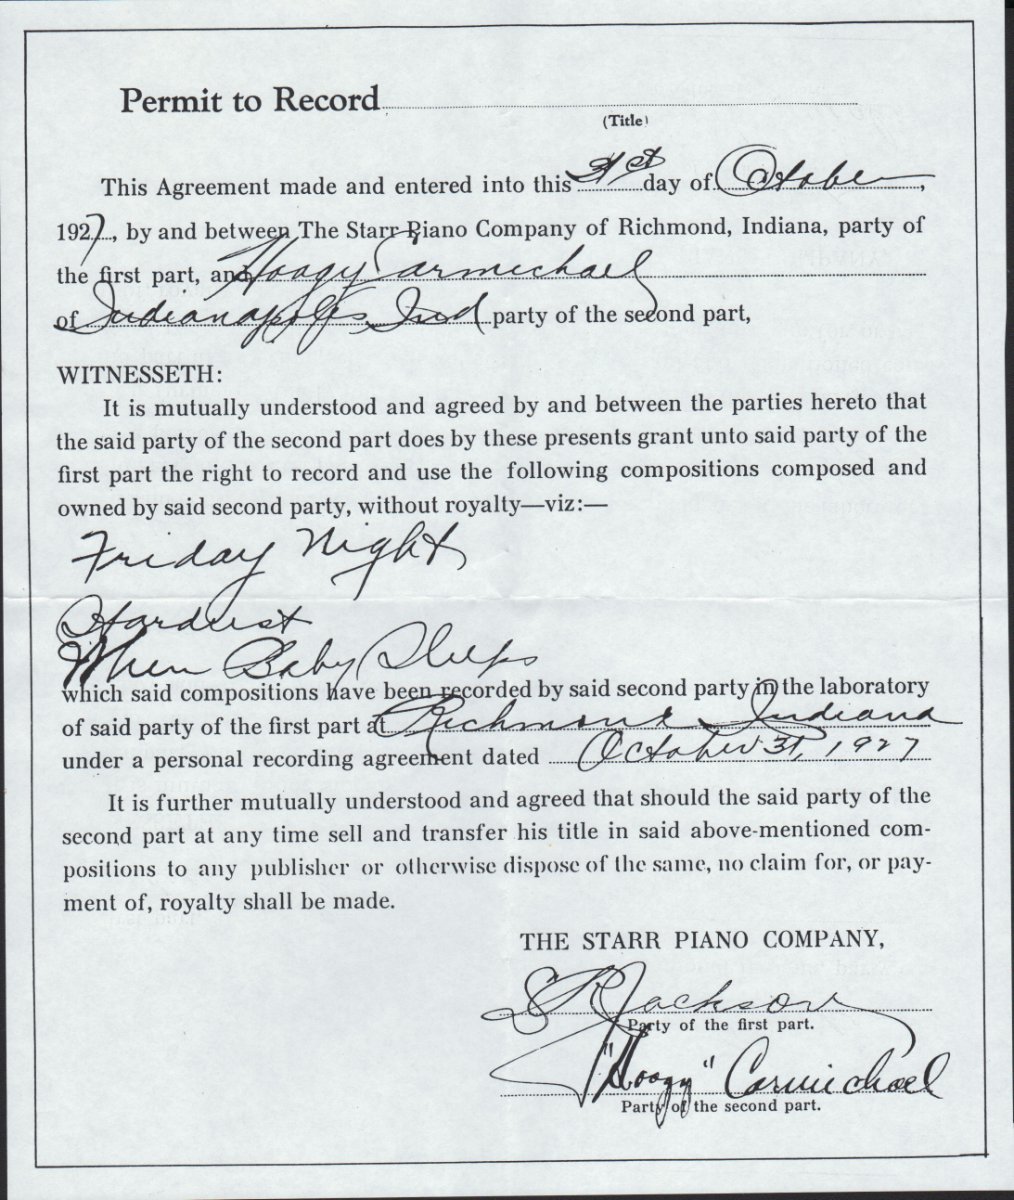 Permit to Record
(Title)
This Agreement made and entered into this 31st day of October,
1927, by and between The Starr Piano Company of Richmond, Indiana, party of
the first part, and Hoagy Carmichael
of Indianapolis, Ind party of the second part,
WITNESSETH:
It is mutually understood and agreed by and between the parties hereto that
the said party of the second part does by these presents grant unto said party of the
first part the right to record and use the following compositions composed and
owned by said second party, without royalty—viz:—
Friday Night
Stardust
When Baby Sleeps
which said compositions have been recorded by said second party in the laboratory
of said party of the first part at Richmond Indiana
under a personal recording agreement dated October 31, 1927
It is further mutually understood and agreed that should the said party of the
second part at any time sell and transfer his title in said above-mentioned com-
positions to any publisher or otherwise dispose of the same, no claim for, or pay-
ment of, royalty shall be made.
THE STARR PIANO COMPANY,
Jackson
Party of the first part.
"Hoagy" Carmichael
Party of the second part.